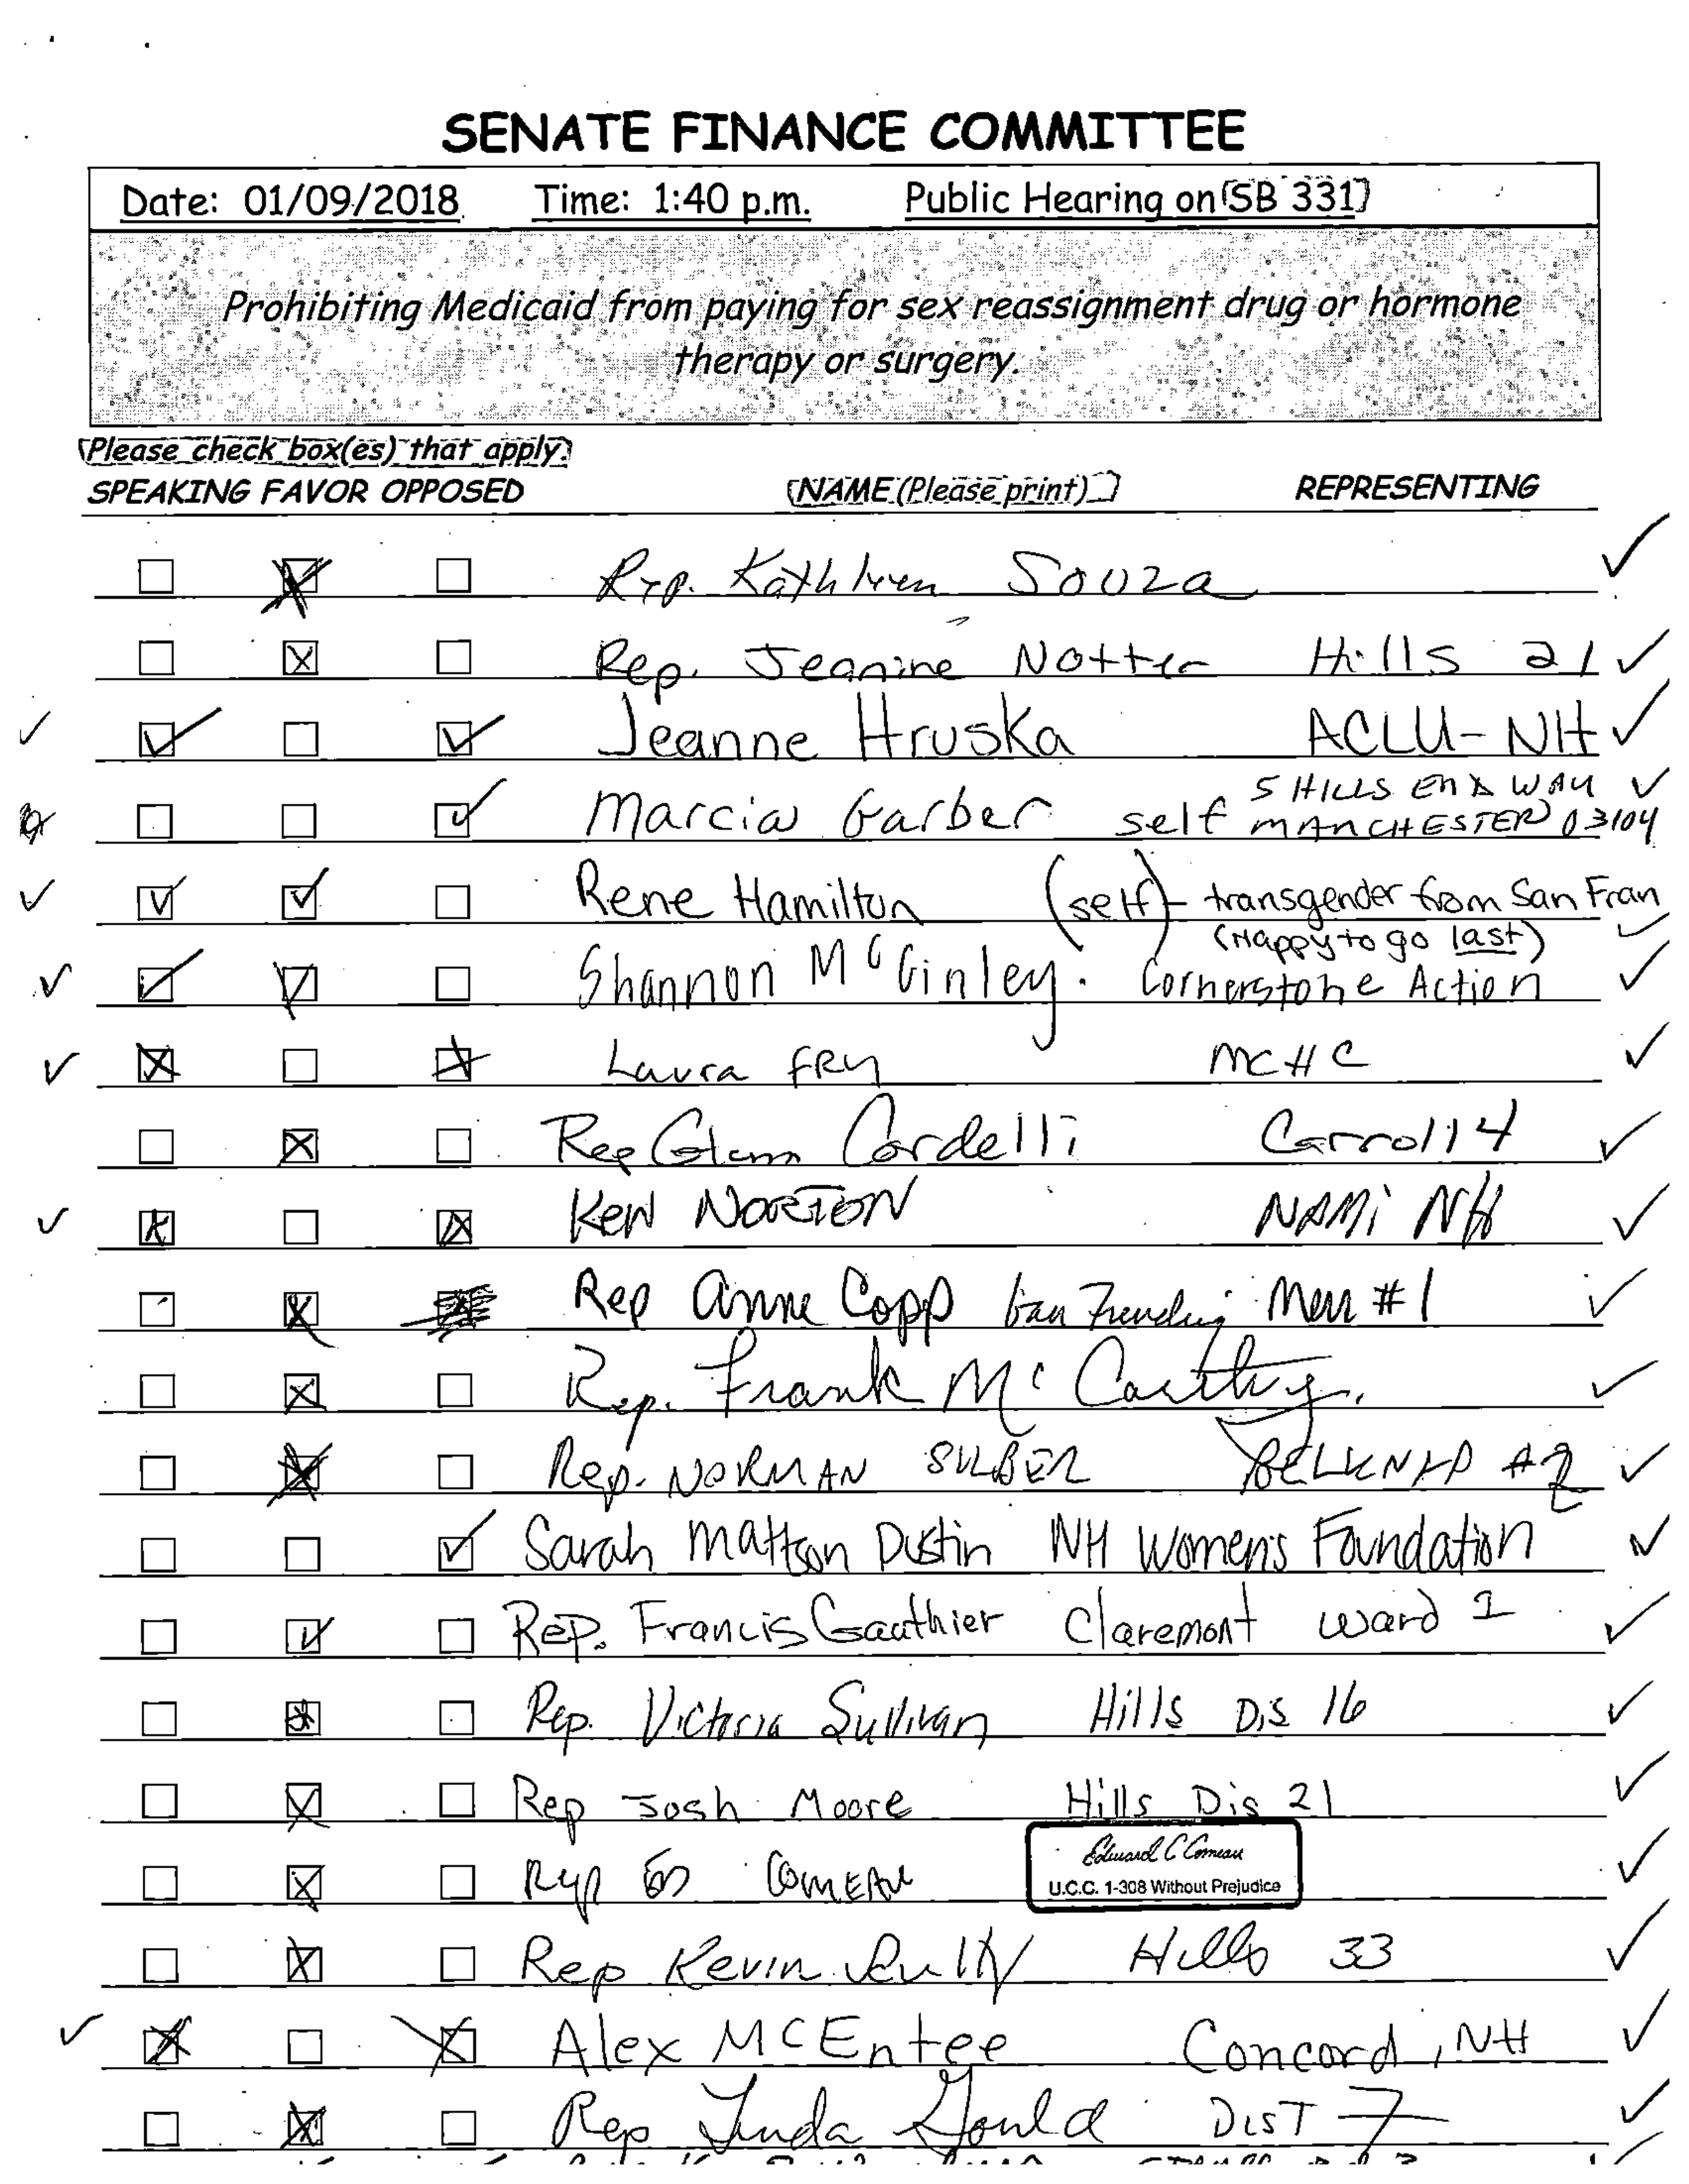 SENATE FINANCE COMMITTEE
Date: 01/09/2018 Time: 1:40 p.m. Public Hearing on SB 331
Prohibiting Medicaid from paying for sex reassignment drug or hormone
therapy or surgery.
Please check box(es) that apply.
SPEAKING FAVOR OPPOSED NAME (Please print) REPRESENTING
Rep. Kathleen Souza
Rep. Jeanine Notter Hills 21
Jeanne Hruska ACLU-NH
Marcia Garber self 5 HILLS END WAY
MANCHESTER 03104
Rene Hamilton (self) - transgender from San Fran
(Happy to go last)
Shannon McGinley. Cornerstone Action
Laura FRY MCHC
Rep Glenn Cordelli Carroll 4
Ken NORTON NAMI NH
Rep Anne Copp Mem #1
Rep. Frank McCarthy.
Rep. NORMAN SILBER BELKNAP #2
Sarah Mattson Dustin NH Women's Foundation
Rep. Francis Gauthier Claremont ward 1
Rep. Victoria Sullivan Hills Dis 16
Rep Josh Moore Hills Dis 21
Rep Ed COMEAU Edward C Comeau
U.C.C. 1-308 Without Prejudice
Rep Kevin Scully Hills 33
Alex McEntee Concord, NH
Rep Linda Gould DIST 7